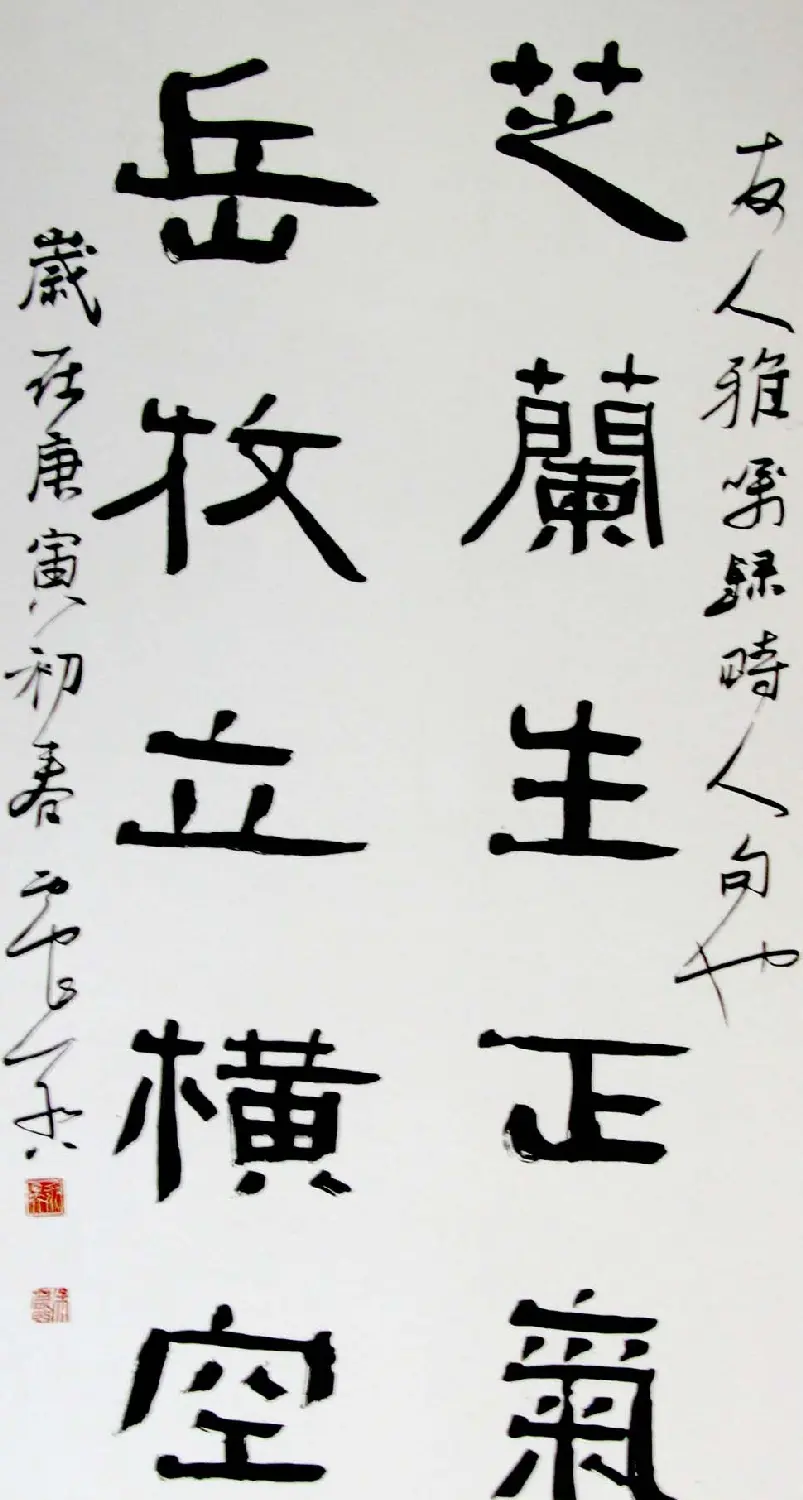 友人雅嘱録時人句也
芝蘭生正氣
岳牧立横空
歲在庚寅初春